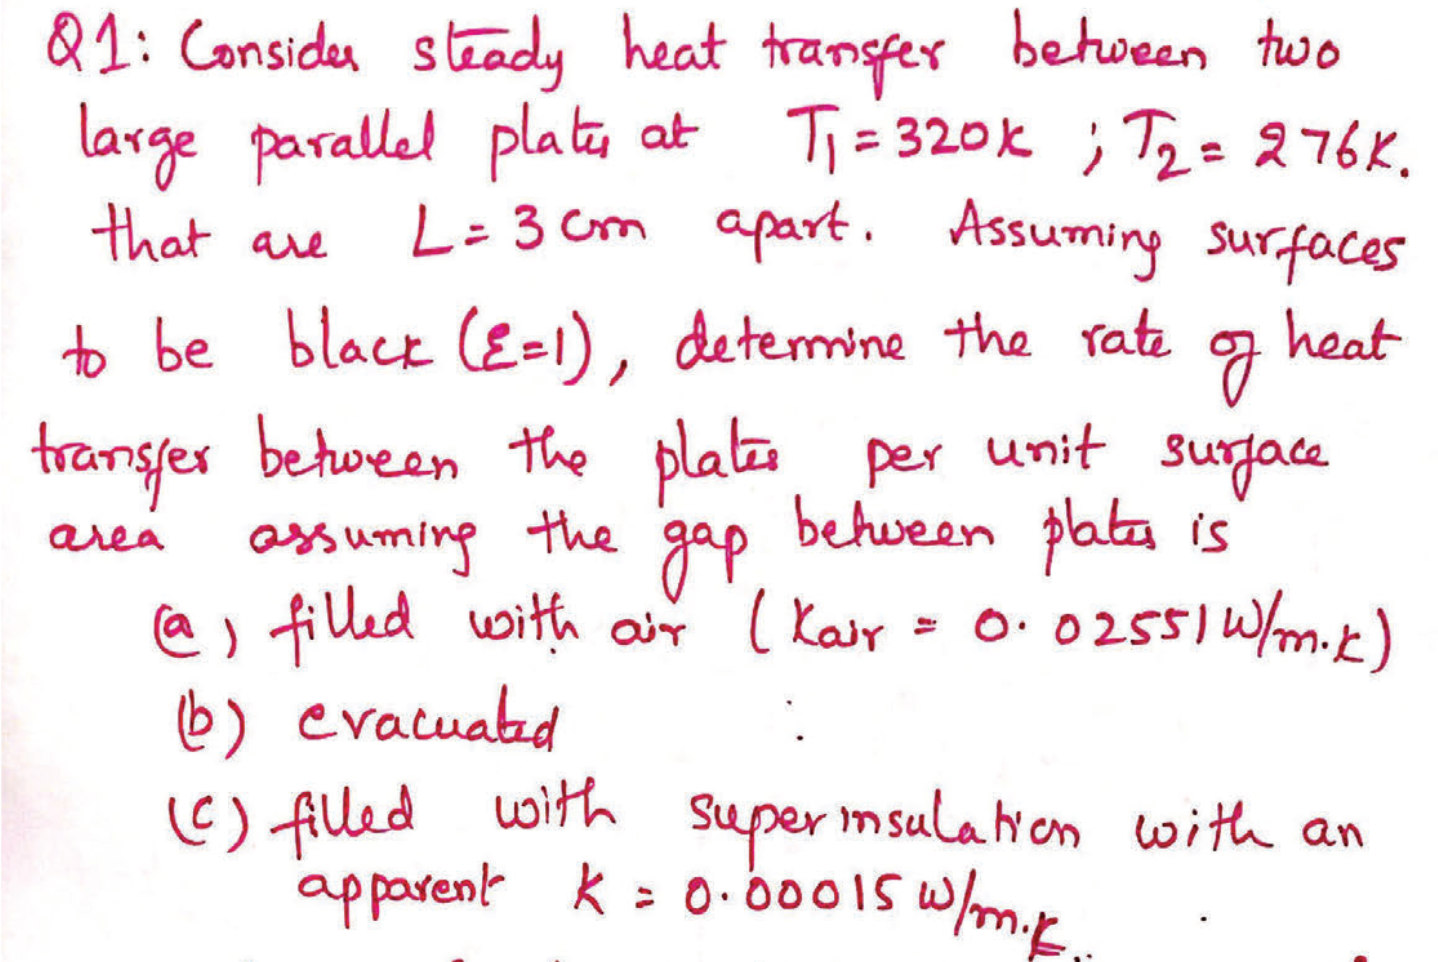 Q1: Consider steady heat transfer between two
large parallel plates at T₁ = 320K ; T₂ = 276K.
that are L = 3 cm apart. Assuming surfaces
to be black (ε=1), determine the rate of heat
transfer between the plates per unit surface
area assuming the gap between plates is
(a) filled with air (Kair = 0.02551 W/m.K)
(b) evacuated
(c) filled with superinsulation with an
apparent K = 0.00015 W/m.K.